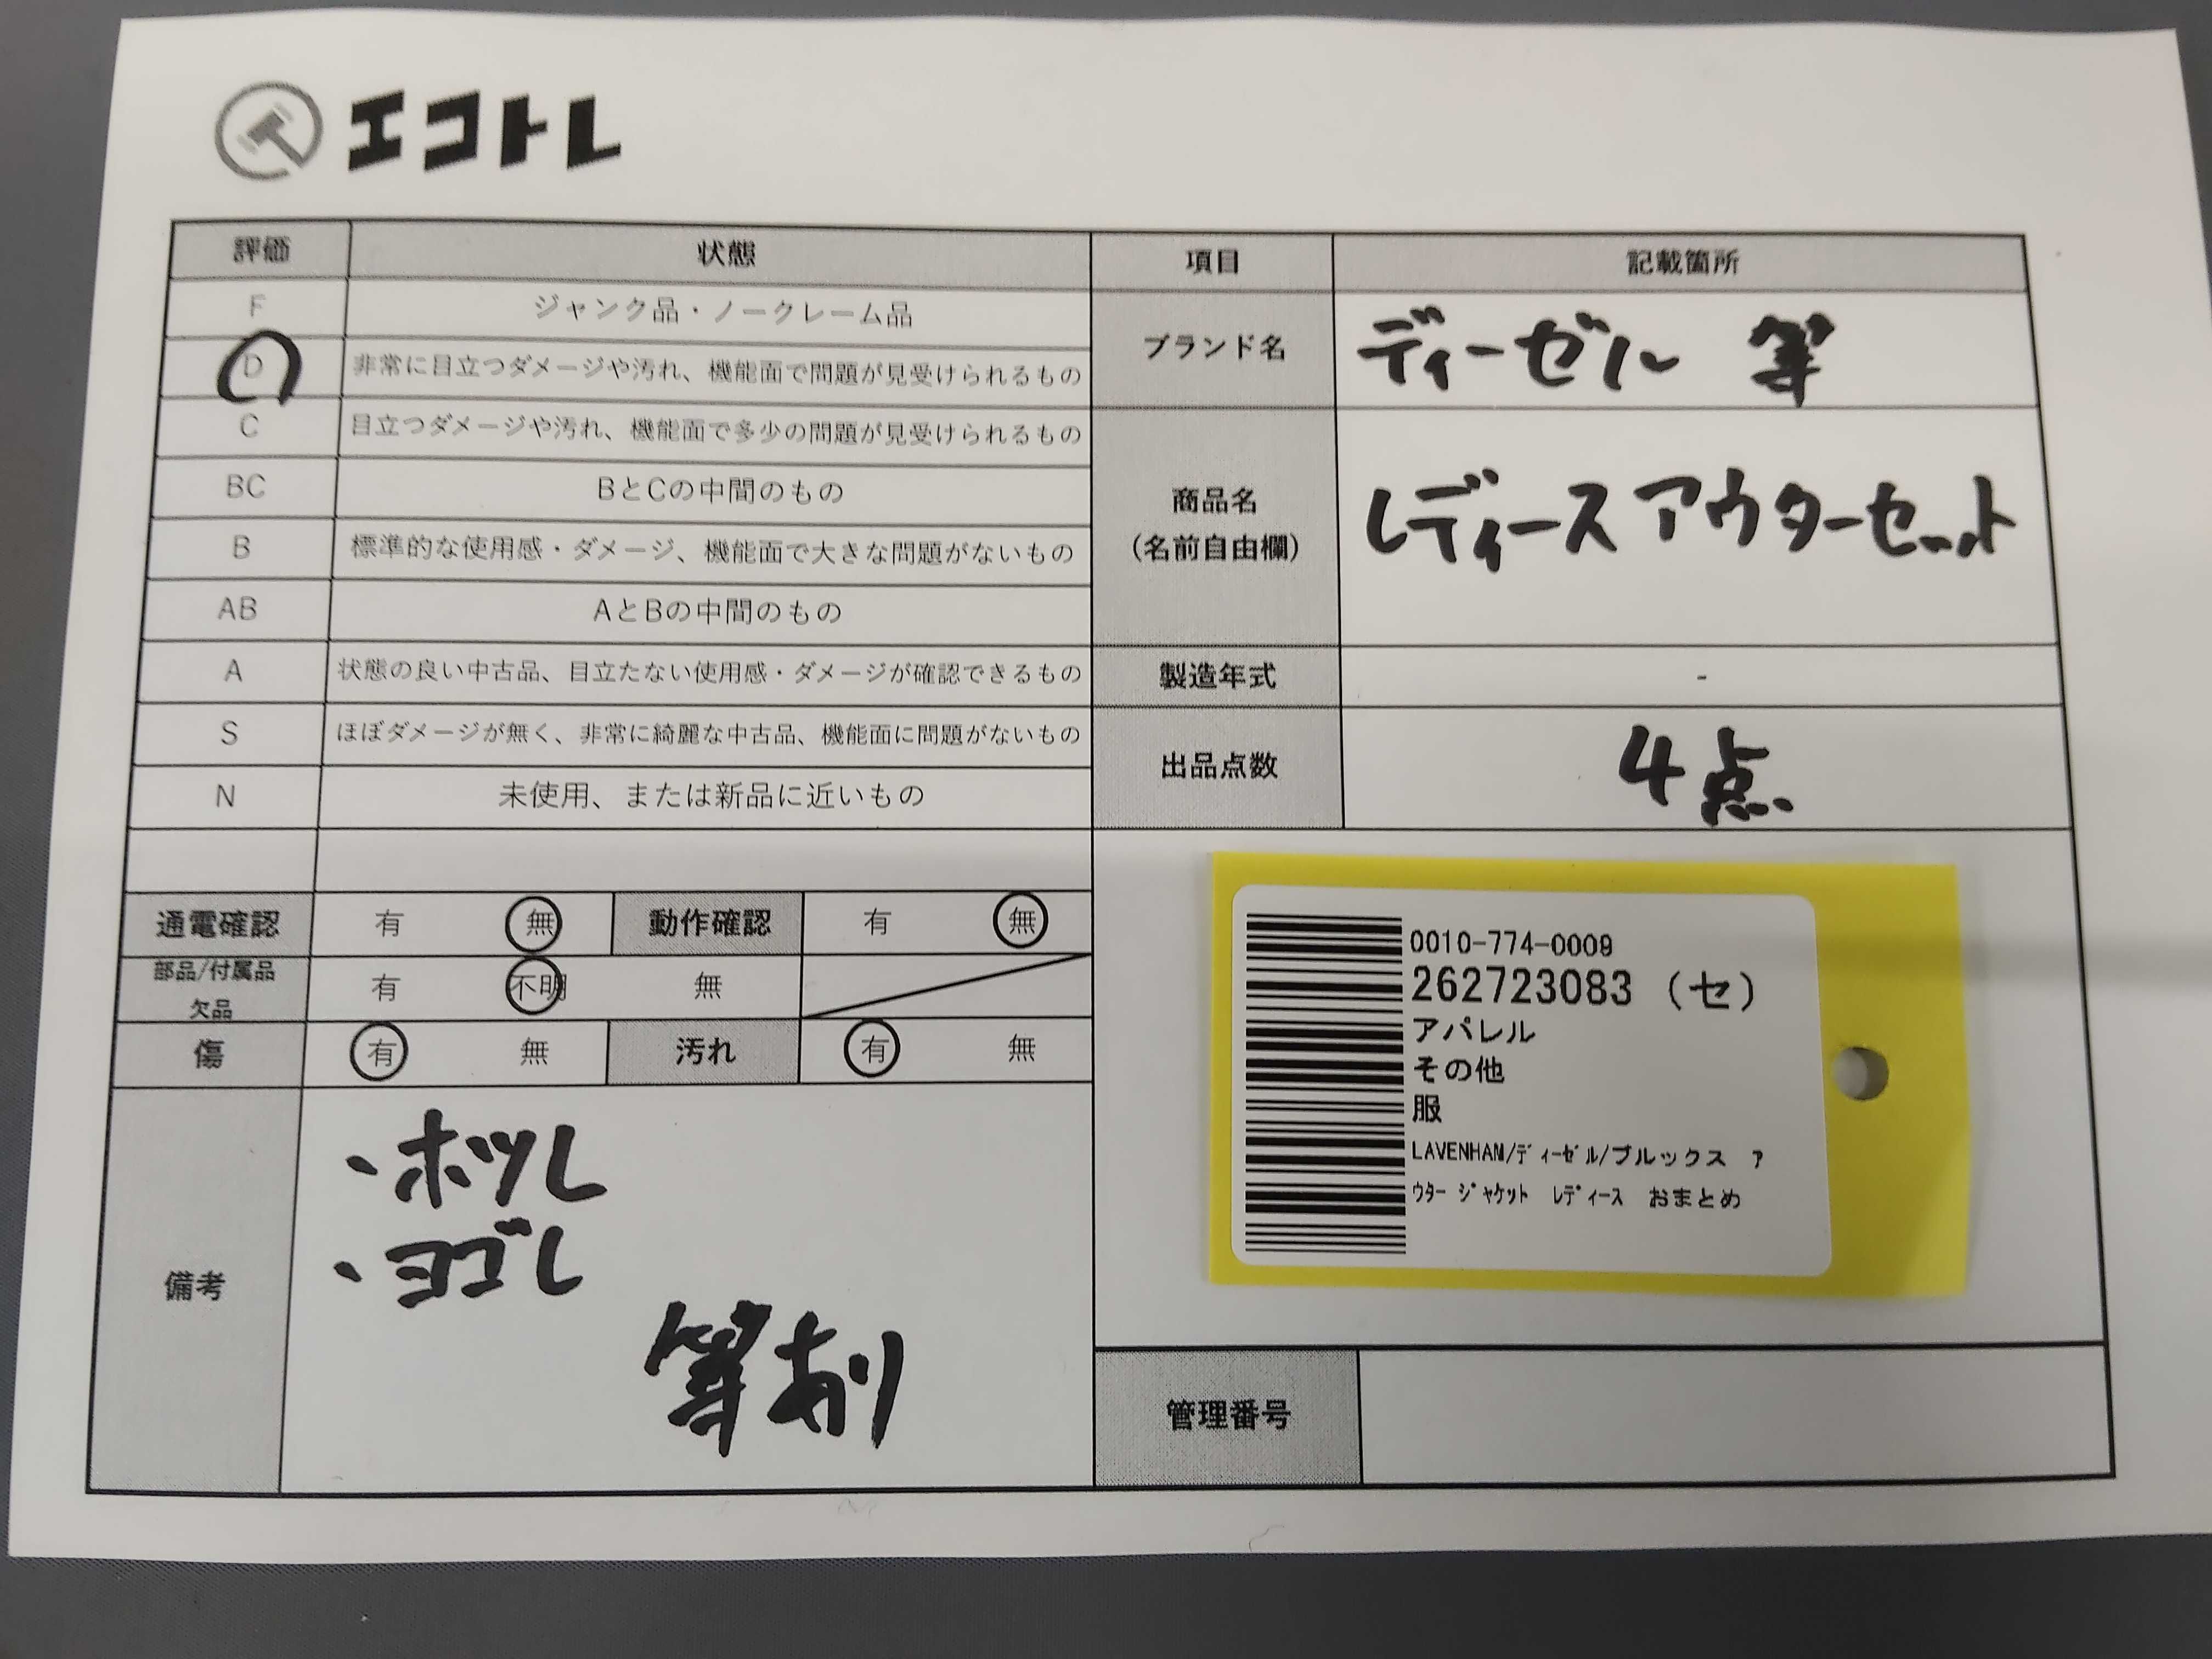 エコトレ
評価 状態 項目 記載箇所
F ジャンク品・ノークレーム品
D 非常に目立つダメージや汚れ、機能面で問題が見受けられるもの
ブランド名 ディーゼル 等
C 目立つダメージや汚れ、機能面で多少の問題が見受けられるもの
BC BとCの中間のもの
商品名
(名前自由欄)
レディースアウターセット
B 標準的な使用感・ダメージ、機能面で大きな問題がないもの
AB AとBの中間のもの
A 状態の良い中古品、目立たない使用感・ダメージが確認できるもの
製造年式 -
S ほぼダメージが無く、非常に綺麗な中古品、機能面に問題がないもの
出品点数 4点
N 未使用、または新品に近いもの
通電確認 有 無 動作確認 有 無
部品/付属品
欠品
有 不明 無
傷 有 無 汚れ 有 無
備考
・ホツレ
・ヨゴレ
等有り
0010-774-0009
262723083 (セ)
アパレル
その他
服
LAVENHAM/ディーゼル/ブルックス ア
ウター ジャケット レディース おまとめ
管理番号